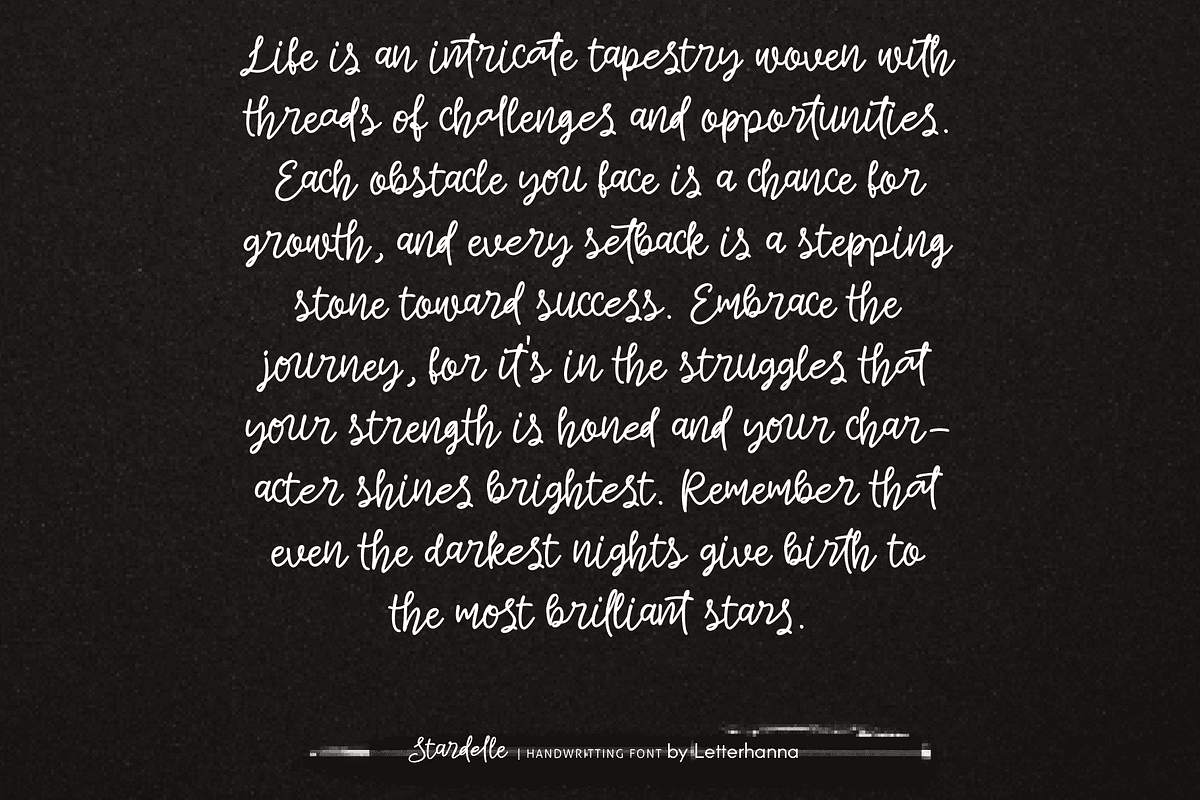 Life is an intricate tapestry woven with
threads of challenges and opportunities.
Each obstacle you face is a chance for
growth, and every setback is a stepping
stone toward success. Embrace the
journey, for it's in the struggles that
your strength is honed and your char-
acter shines brightest. Remember that
even the darkest nights give birth to
the most brilliant stars.
Stardelle | HANDWRITTING FONT by Letterhanna